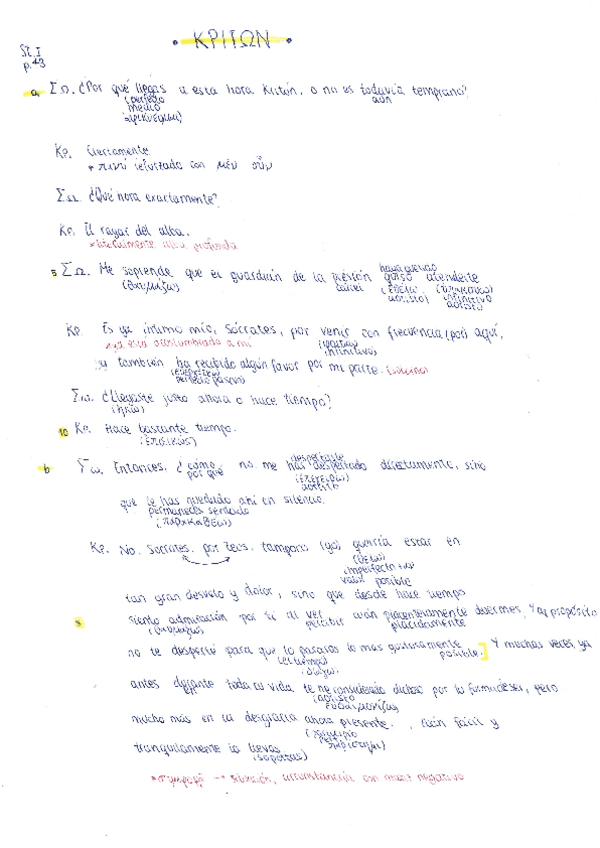 • ΚΡΙΤΩΝ •
St. I
p. 43
a, ΣΩ. ¿Por qué llegas a esta hora Kritón, o no es todavía temprano?
(perfecto aún
medio
ἀφικνέομαι)
Κρ. Ciertamente
* πανύ reforzado con μέν οὖν
ΣΩ. ¿Qué hora exactamente?
Κρ. El rayar del alba.
*literalmente alba profunda
5 ΣΩ. Me soprende que el guardián de la prisión quiso atenderte
(θαυμάζω) (ἐθέλω (ὑπακούω)
aoristo) infinitivo
aoristo
Κρ. Es ya íntimo mío, Sócrates, por venir con frecuencia (por) aquí,
*ya está acostumbrado a mí (φοιτάω
infinitivo)
y también ha recibido algún favor por mi parte.
(εὐεργετέω
perfecto pasivo)
Σω. ¿Llegaste justo ahora o hace tiempo?
(ἥκω)
10 Κρ. Hace bastante tiempo.
(ἐπιεικῶς)
b Σω. Entonces, ¿cómo no me has despertado directamente, sino
por qué (ἐπεγείρω)
aoristo
que te has quedado ahí en silencio.
permaneces sentado
(παρακαθέω)
Κρ. No, Sócrates, por Zeus, tampoco (yo) querría estar en
(θέλω)
imperfecto +αν
valor posible
tan gran desvelo y dolor, sino que desde hace tiempo
5 siento admiración por ti al ver cuán placenteramente duermes, Y a propósito
(θαυμάζω) percibir plácidamente
no te desperté para que lo pasaras lo más gustosamente posible.] Y muchas veces, ya
(el tiempo)
antes durante toda tu vida, te he considerado dichoso por tu forma de ser, pero
(aoristo
εὐδαιμονίζω)
mucho más en la desgracia ahora presente. , cuán fácil y
(participio
perf.
παρίστημι)
tranquilamente la llevas
*συμφορά → situación, circunstancia con matiz negativo